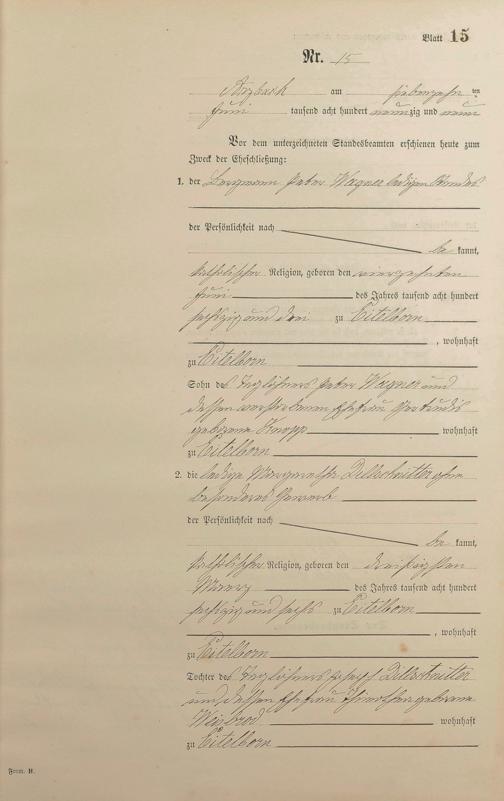 Blatt 15
Nr. 15
Arzbach am siebenzehn ten
Juni tausend acht hundert neunzig und neun
Vor dem unterzeichneten Standesbeamten erschienen heute zum
Zweck der Eheschließung:
1. der Bergmann Peter Wagner ledigen Standes
der Persönlichkeit nach
be kannt,
katholischer Religion, geboren den vierzehnten
Juni des Jahres tausend acht hundert
sechszig und drei zu Eitelborn
, wohnhaft
zu Eitelborn
Sohn des Taglöhners Peter Wagner und
dessen verstorbenen Ehefrau Gertrudis
geborene Knopp wohnhaft
zu Eitelborn
2. die ledige Margaretha Dillschnitter ohne
besonderes Gewerb
der Persönlichkeit nach
be kannt,
katholischer Religion, geboren den dreißigsten
März des Jahres tausend acht hundert
sechszig und sechs zu Eitelborn
, wohnhaft
zu Eitelborn
Tochter des Taglöhners Joseph Dillschnitter
und dessen Ehefrau geborene
Weisbrod wohnhaft
zu Eitelborn
Form. B.